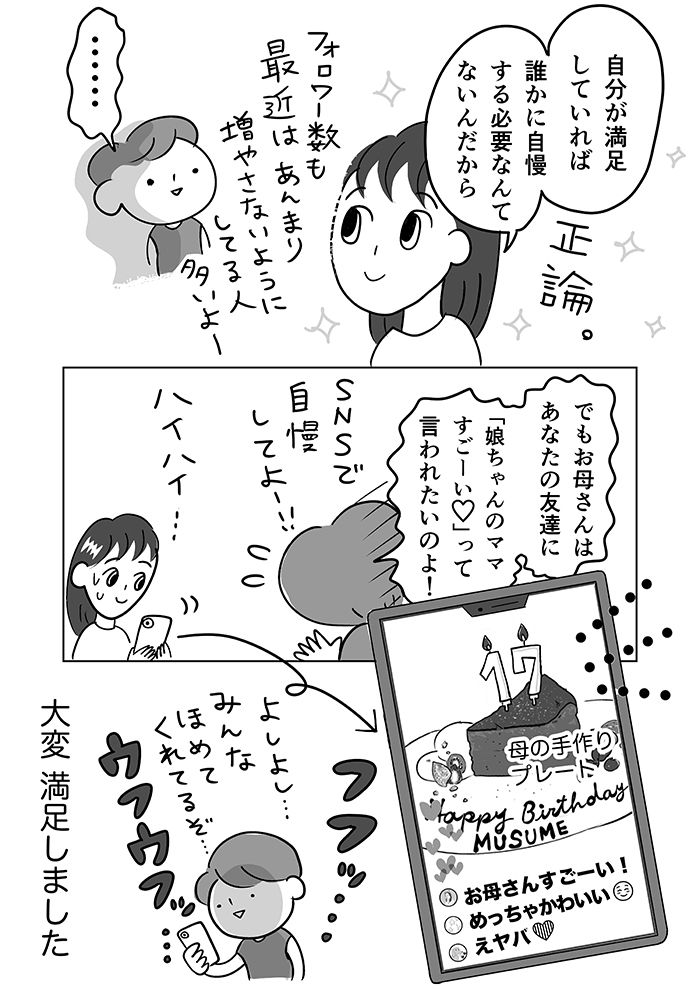 自分が満足
していれば
誰かに自慢
する必要なんて
ないんだから
正論。
フォロワー数も
最近は あんまり
増やさないように
してる人
多いよー
・・・・・・
でもお母さんは
あなたの友達に
「娘ちゃんのママ
すごーい♡」って
言われたいのよ！
SNSで
自慢
してよー!!
ハイハイ…
17
母の手作り
プレート
Happy Birthday
MUSUME
お母さんすごーい！
めっちゃかわいい😊
えヤバ♥
フフ…
よしよし…
みんな
ほめて
くれてるぞ…
ウフウフ…
大変 満足しました